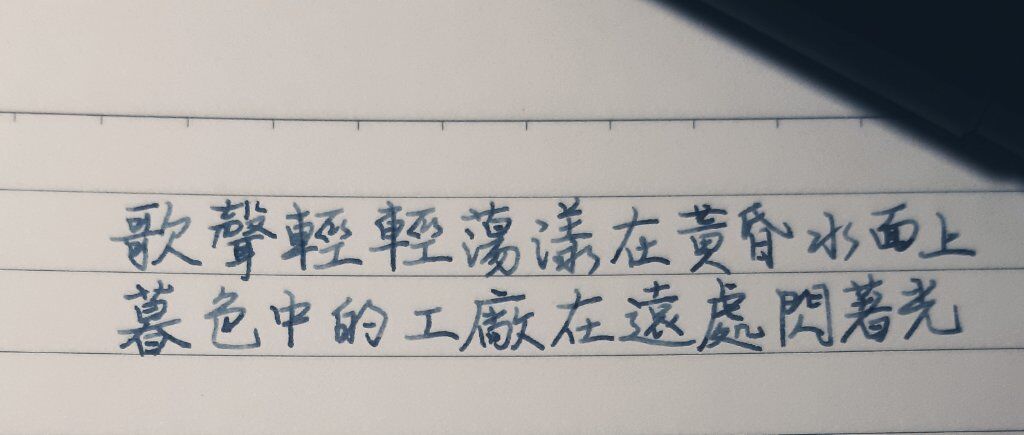 歌聲輕輕蕩漾在黃昏水面上
暮色中的工廠在遠處閃著光